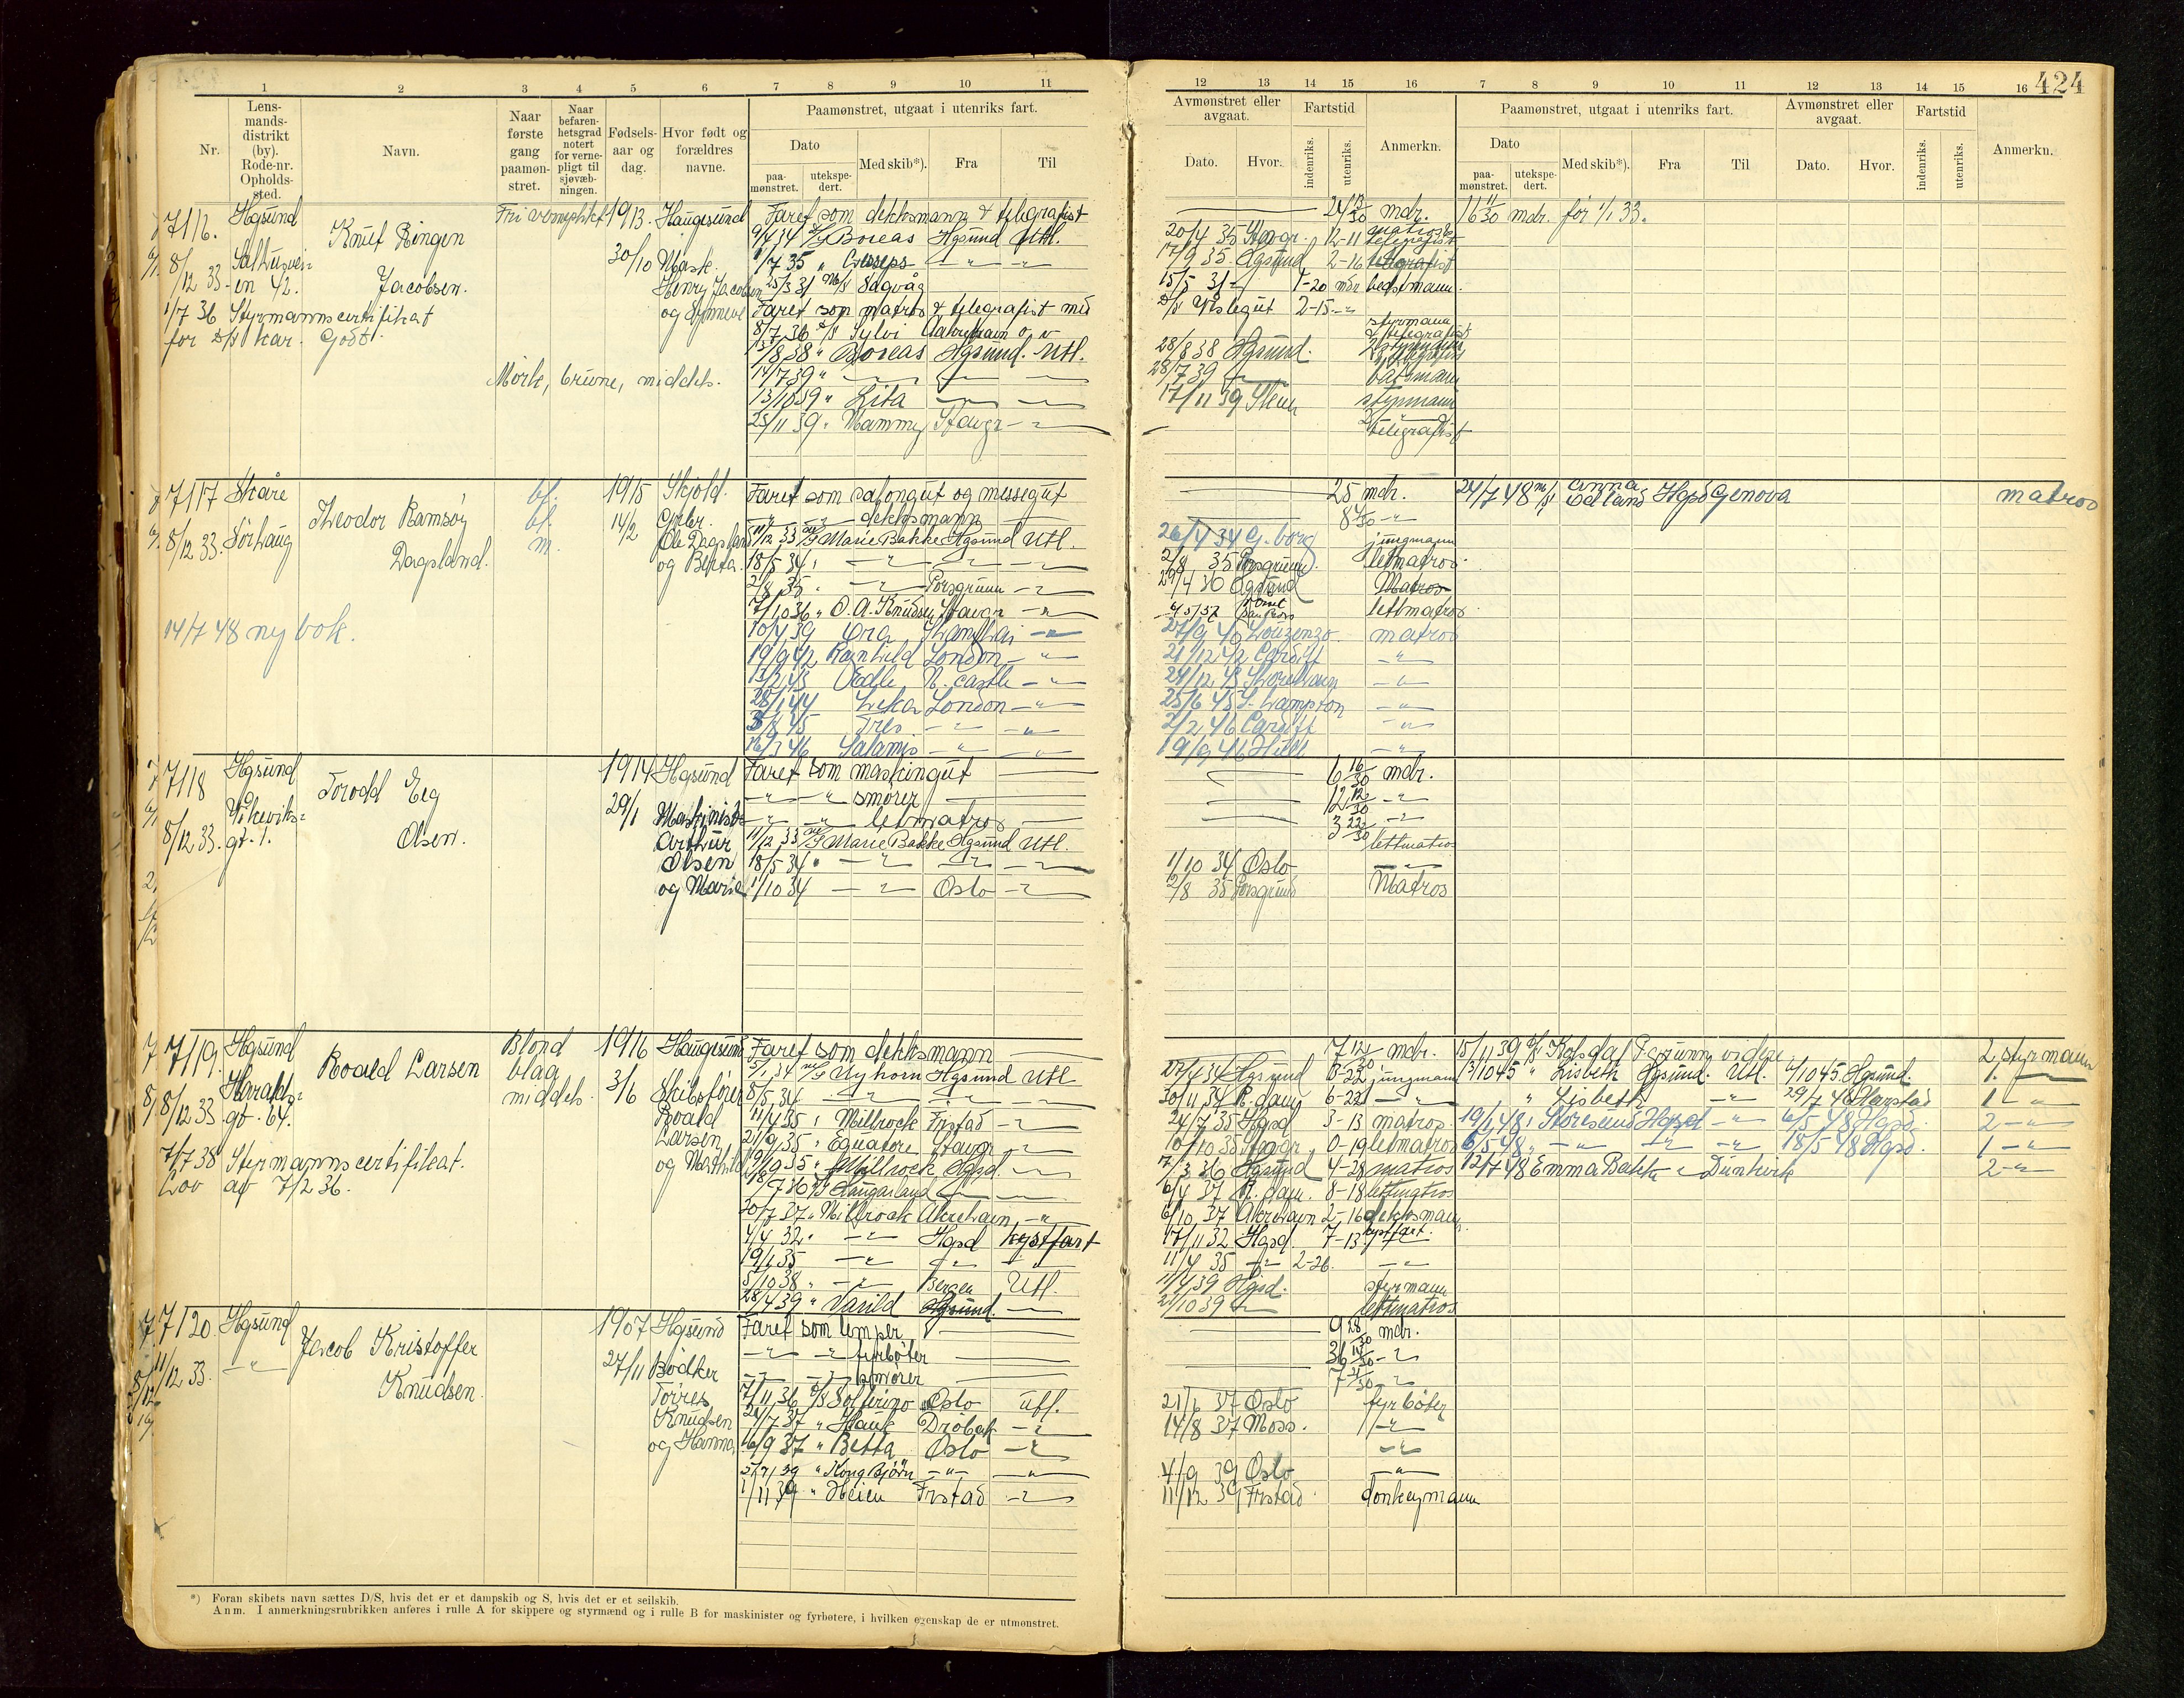 424
1 2 3 4 5 6 7 8 9 10 11
Nr.
Lens-
mands-
distrikt
(by).
Rode-nr.
Opholds-
sted.
Navn.
Naar
første
gang
paamøn-
stret.
Naar
befaren-
hetsgrad
notert
for verne-
pligt til
sjøvæb-
ningen.
Fødsels-
aar og
dag.
Hvor født og
forældres
navne.
Paamønstret, utgaat i utenriks fart.
Dato
paa-
mønstret.
utekspe-
dert.
Med skib*).
Fra
Til
12 13 14 15 16 7 8 9 10 11 12 13 14 15 16
Avmønstret eller
avgaat.
Dato.
Hvor.
Fartstid
indenriks.
utenriks.
Anmerkn.
Paamønstret, utgaat i utenriks fart.
Dato
paa-
mønstret.
utekspe-
dert.
Med skib*).
Fra
Til
Avmønstret eller
avgaat.
Dato.
Hvor.
Fartstid
indenriks.
utenriks.
Anmerkn.
7116.
Hgsund
8/12 33
en 42.
Knut Ringen
Jacobsen.
1/7 36 Styrmannscertifikat
for D/S kar. Godt.
Mörk, brune, middels.
1913.
30/10
Haugesund
Mask.
Henry Jacobsen
og Synneve
Faret som dekksmann & telegrafist
9/4 34 Boreas Hgsund Utl.
1/7 35 "
25/3 31 M/S Sagvåg
Faret som matros & telegrafist med
8/7 36 D/S Sylvi
/8 38 " Boreas Hgsund. Utl.
14/7 39 "
13/10 39 " Lita
25/11 39 " Mammy Stavgr
24 13/30 mdr. 16 11/30 mdr. før 1/1 33.
20/4 35 Stavgr. 12-11 telegrafist
17/9 35 Hgsund 2-16 telegrafist
15/5 31 1-20 mdr bestmann.
2-15
styrmann
28/8 38 Hgsund.
28/7 39
17/11 39 styrmann
telegrafist
7117
Skåre
8/12 33.
Sørhaug
Theodor Ramsöy
Dagsland.
14/7 48 ny bok.
bl.
bl.
m.
1915
14/2
Skjold.
Ole Dagsland
og Berta.
Faret som salongut og messegut
dekksmann
11/12 33 Marie Bakke Hgsund Utl.
18/5 34
2/8 35 " Porsgrunn
7/10 36 " O. A. Knudsen Stavgr
10/4 39 Ora Shanghai
19/9 42 Ragnhild London
13/2 43 Edle N. castle
28/1 44 Leka London
45 Tres
16/3 46 Salamis
25 mdr.
8 4/30
26/4 34 G.borg jungmann
2/8 35 Porsgrunn lettmatros
29/4 36 Hgsund Matros
lettmatros
27/9 40 Lourenzo matros
21/12 42 Cardiff
24/12 43 Shoreham
25/6 45 S.hampton
2/2 46 Cardiff
19/9 46 Hull
24/7 48 m/s Anna Odland Hgsd Genova matros
7118
Hgsund
8/12 33. gt. 1.
Torodd Eeg
Olsen.
1914
29/1
Hgsund
Maskinist
Arthur
Olsen
og Marie
Faret som maskingut
smører
lettmatros
11/12 33 Marie Bakke Hgsund Utl.
18/5 34
1/10 34 Oslo
6 16/30 mdr.
12 12/30
3 22/30
lettmatros
1/10 34 Oslo
2/8 35 Porsgrund Matros
7119.
Hgsund
Haralds-
8/12 33. gt. 64.
Roald Larsen
Blond
blaa
middels.
7/7 38 Styrmannscertifikat.
Lov av 7/2 36.
1916
3/6
Haugesund
Skibsfører
Roald
Larsen
og Mathilde
Faret som dekksmann
3/1 34 Nyhorn Hgsund Utl
8/5 34
11/4 35 Millrock Frstad
21/9 35 " Equatore Stavgr
19/10 35 " Millrock Hgsd.
18/7 36 Haugarland
20/7 37 " Millrock Åkrehavn
4/4 32 " Hgsd kystfart
19/1 35
5/10 38 " Bergen Utl.
28/4 39 " Varild Hgsund.
7 12/30 mdr.
27/4 34 Hgsund 3-22 jungmann
30/11 34 R.dam 6-22
24/7 35 Hgsd 3-13 matros
10/10 35 Stavgr 0-19 lettmatros
7/3 36 Hgsund 4-28 matros
6/4 37 R.dam. 8-18 lettmatros
6/10 37 Åkrehavn 2-16 dekksmann
17/11 32 Hgsd 7-13 kystfart.
11/4 35 2-26.
11/4 39 Hgsd. styrmann
21/10 39 lettmatros
15/11 39 D/S Korsdal P.grunn videre 2 styrmann
3/10 45 " Lisbeth Hgsund. Utl. 4/10 45 Hgsund. 1.
" Lisbeth 29/7 46 Harstad 1
19/1 48 Storesund Hgsd 6/5 48 Hgsd. 2
6/5 48 18/5 48 Hgsd. 1
12/7 48 Emma Bakke Dunkirk 2
7120.
Hgsund
11/12 33.
Jacob Kristoffer
Knudsen.
1907
27/11
Hgsund
Bødker
Torres
Knudsen
og Hanna
Faret som lemper
fyrbøter
smører
7/11 36 D/S Solferino Oslo utl.
24/7 37 " Hauk Drøbak
16/9 37 " Betta Oslo
5/7 39 " Kong Bjørn
1/11 39 " Heien Frstad
9 28/30 mdr.
36 14/30
7 21/30
21/6 37 Oslo fyrbøter
14/8 37 Moss.
4/9 39 Oslo
11/12 39 Frstad donkeymann
*) Foran skibets navn sættes D/S, hvis det er et dampskib og S, hvis det er et seilskib.
Anm. I anmerkningsrubrikken anføres i rulle A for skippere og styrmænd og i rulle B for maskinister og fyrbøtere, i hvilken egenskap de er utmønstret.